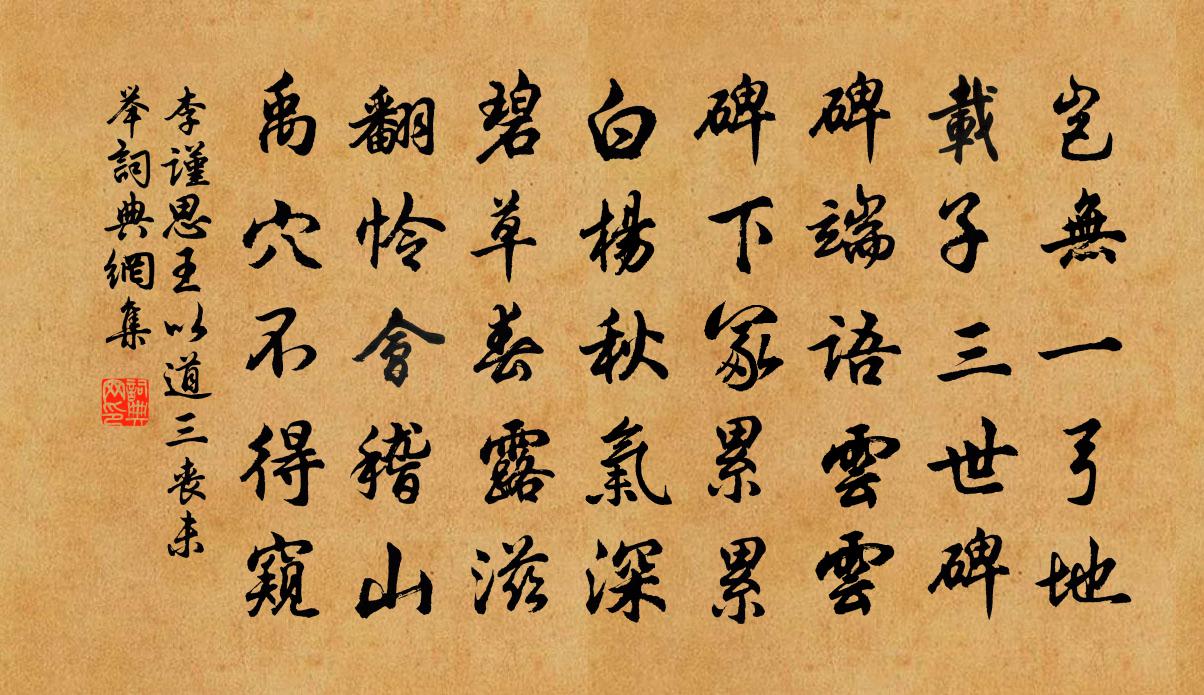 豈無一弓地
載子三世碑
碑端語雲雲
碑下冢累累
白楊秋氣深
碧草春露滋
翻怜會稽山
禹穴不得窺
李謹思王以道三丧未
举詞典網集
詞典网印